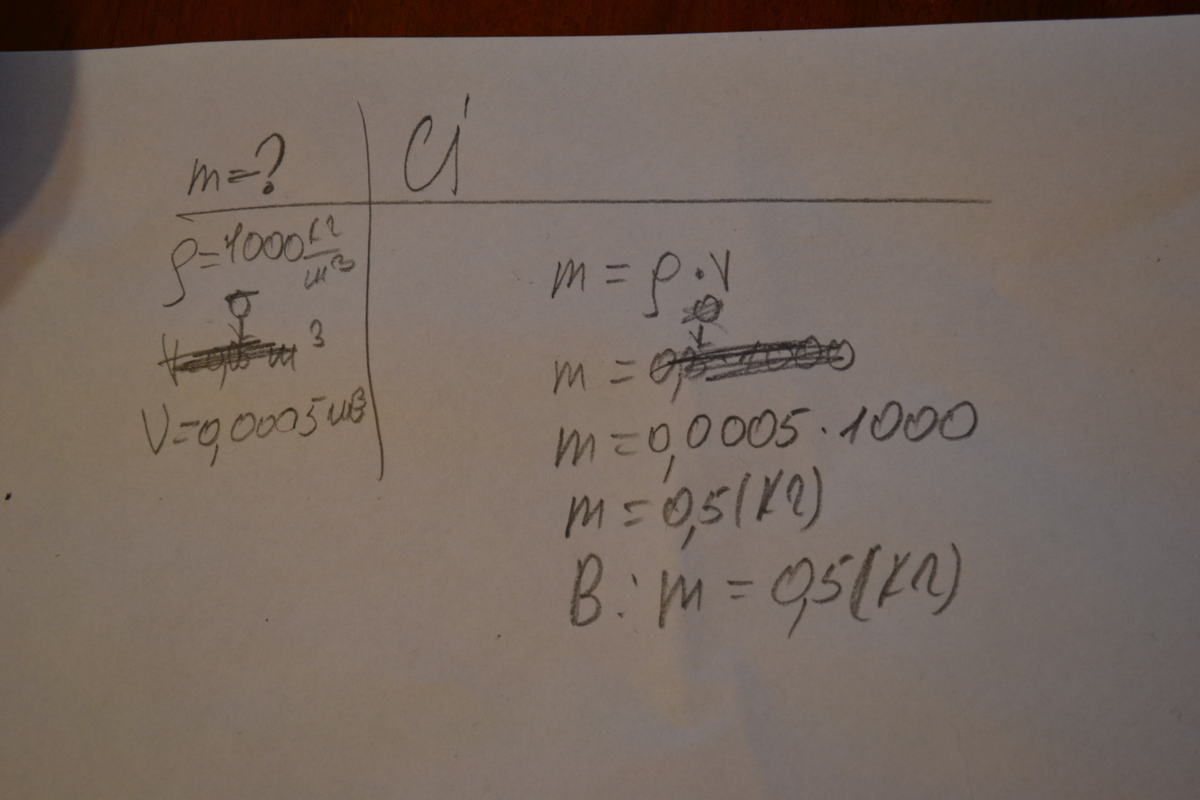 m=?
Сі
ρ=1000 кг/м³
V=0,0005м³
m = ρ·V
m=0,0005·1000
m=0,5(кг)
В: m=0,5(кг)